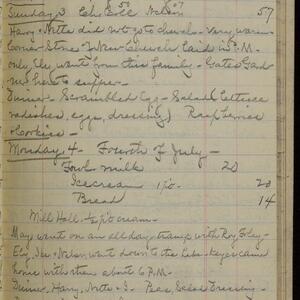 Sunday 3 Ch. Coll Nelson 07 57
Harry + Notta did not go to church - Very warm.
Corner Stone New Church laid P.M.
only Ely went from this family - Gates Gard
here to supper -
Dinner - Scrambled Egg - Salad (lettuce
radishes, eggs, dressing) Raspberries
Cookies -
Monday 4 - Fourth of July -
milk 20
Icecream 1 po 20
Bread 14
Mill Hall - ½ po cream -
May went on an all day tramp with Roy
Ely, + Nelson went down to the came
home with them about 6 P.M.
Dinner, Harry, Notta + I - Peas, Salad Dressing -